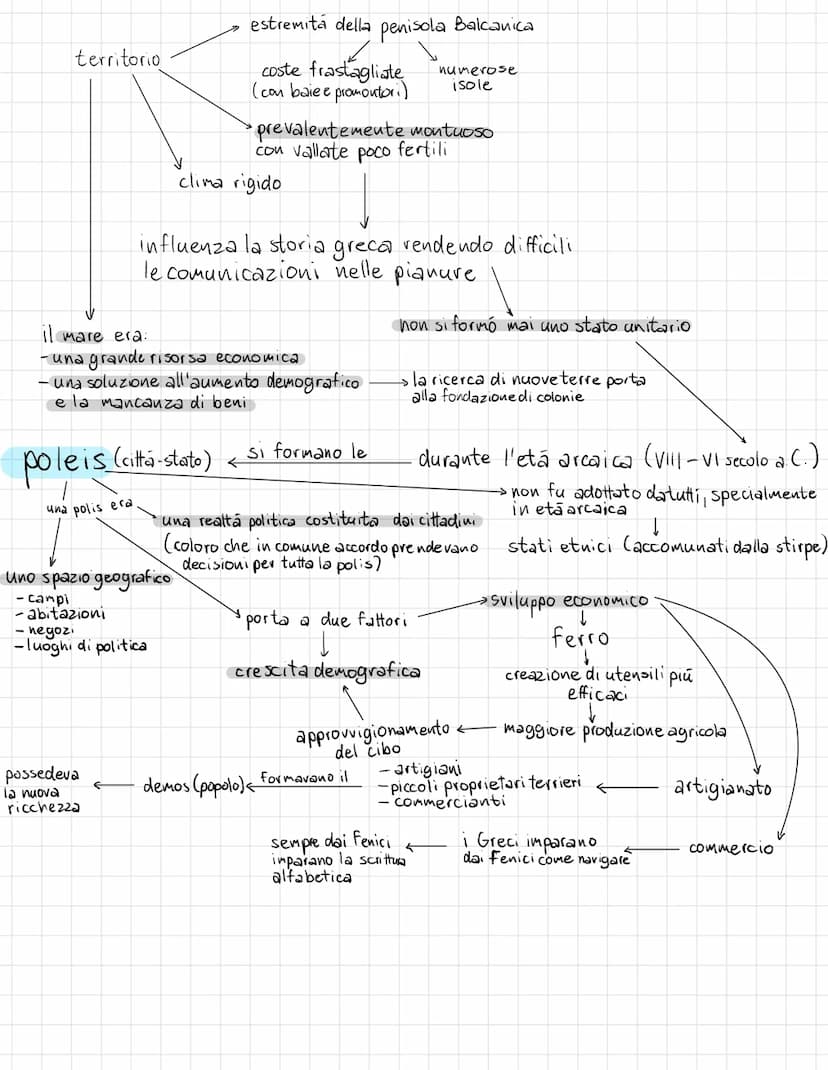 estremitá della penisola Balcanica
territorio
coste frastagliate
(con baie e promontori)
numerose
isole
prevalentemente montuoso
con vallate poco fertili
clima rigido
influenza la storia greca rendendo difficili
le comunicazioni nelle pianure
non si formó mai uno stato unitario
il mare era:
- una grande risorsa economica
- una soluzione all'aumento demografico
e la mancanza di beni
la ricerca di nuove terre porta
alla fondazione di colonie
poleis (cittá-stato)
si formano le
durante l'etá arcaica (VIII-VI secolo a.C.)
non fu adottato da tutti, specialmente
in etá arcaica
una polis era
una realtá politica costituita dai cittadini
(coloro che in comune accordo prendevano
decisioni per tutta la polis)
stati etnici (accomunati dalla stirpe)
uno spazio geografico
- campi
- abitazioni
- negozi
- luoghi di politica
porta a due fattori
sviluppo economico
ferro
crescita demografica
creazione di utensili piú
efficaci
approvvigionamento
del cibo
maggiore produzione agricola
possedeva
la nuova
ricchezza
demos (popolo)
formavano il
- artigiani
- piccoli proprietari terrieri
- commercianti
artigianato
sempre dai Fenici
imparano la scrittura
alfabetica
i Greci imparano
dai Fenici come navigare
commercio